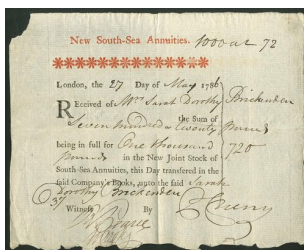 New South-Sea Annuities. 1000 at 72
London, the 27 Day of May 1786
Received of Mrs Sarah Dorothy Brickenden
the Sum of
Seven hundred & twenty Pounds
being in full for One thousand 720
Pounds in the New Joint Stock of
South-Sea Annuities, this Day transferred in the
said Company's Books, unto the said Sarah
Dorothy Brickenden
Witness By